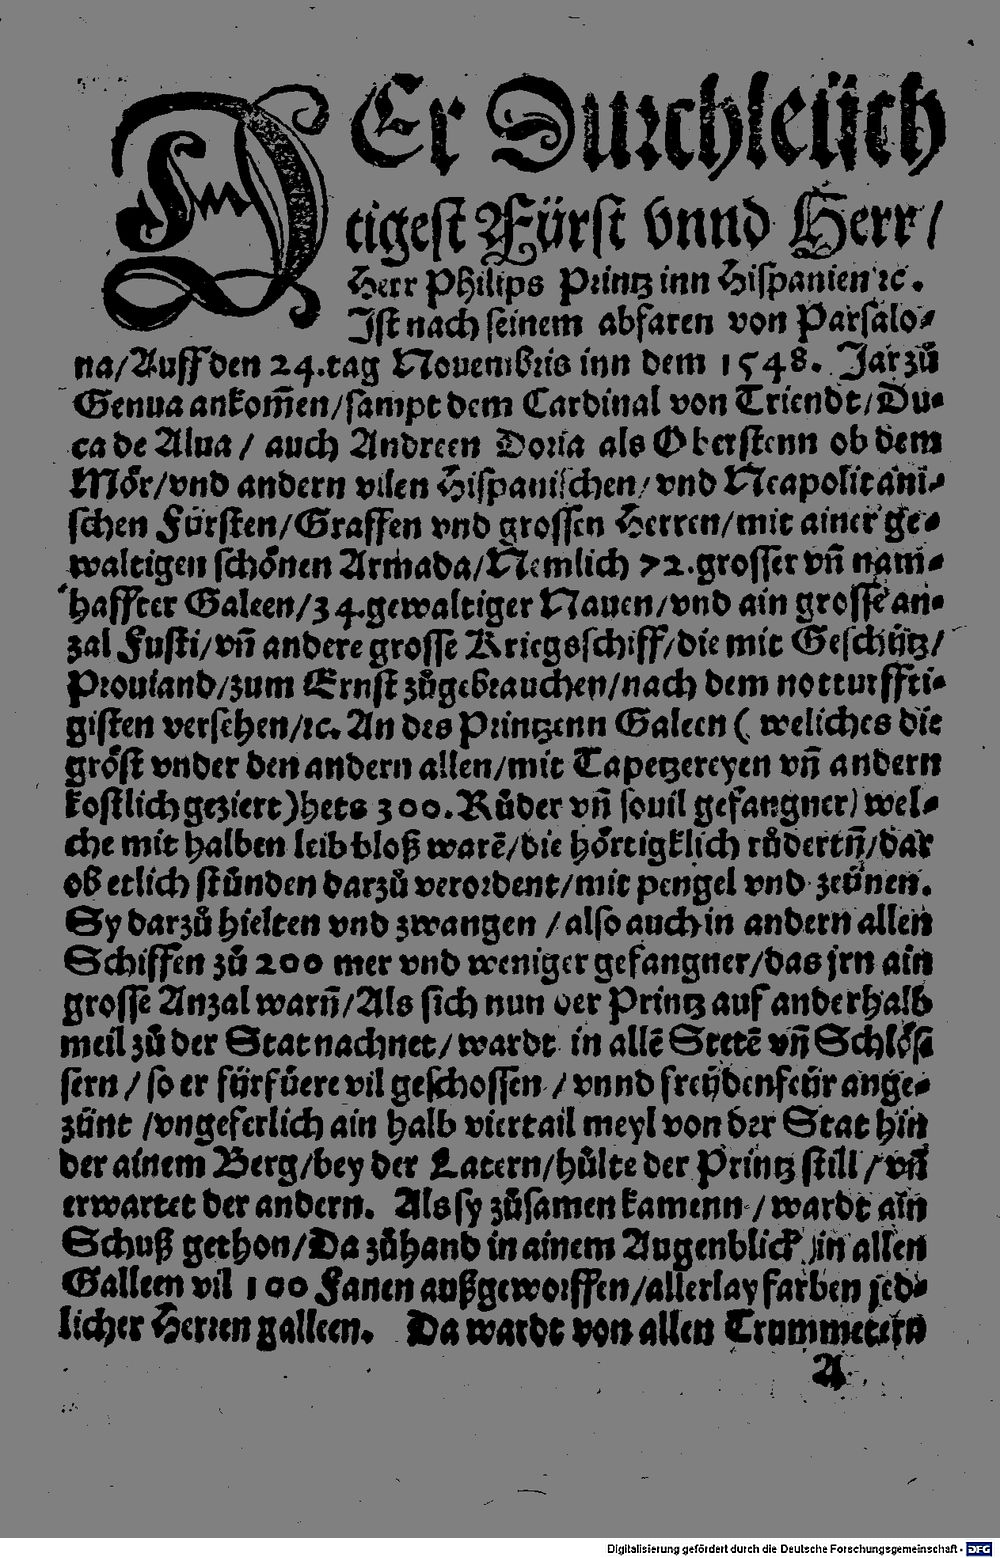 DEr Durchleüch
tigest Fürst vnnd Herr/
Herr Philips Printz inn Hispanien ꝛc.
Ist nach seinem abfaren von Parsalo⸗
na/Auff den 24.tag Nouembris inn dem 1548. Jar zů
Genua ankom̃en/sampt dem Cardinal von Triendt/Du⸗
ca de Alua / auch Andreen Doria als Oberstenn ob dem
Mör/vnd andern vilen Hispanischen/ vnd Neapolitani⸗
schen Fürsten/Graffen vnd grossen Herren/mit ainer ge⸗
waltigen schönen Armada/Nemlich 72.grosser vñ nam⸗
haffter Galeen/34.gewaltiger Nauen/vnd ain grosse an⸗
zal Fusti/vñ andere grosse Kriegsschiff/die mit Geschütz/
Prouiand/zum Ernst zůgebrauchen/nach dem notturffti⸗
gisten versehen/ꝛc. An des Printzenn Galeen ( weliches die
gröst vnder den andern allen/mit Tapetzereyen vñ andern
kostlich geziert)hets 300.Růder vñ souil gefangner) wel⸗
che mit halben leib bloß warẽ/die hörtigklich růdertñ/dar
ob etlich stůnden darzů verordent/mit pengel vnd zeünen.
Sy darzů hielten vnd zwangen / also auch in andern allen
Schiffen zů 200 mer vnd weniger gefangner/das jrn ain
grosse Anzal warñ/Als sich nun der Printz auf anderhalb
meil zů der Stat nachnet/ wardt in allẽ Stetẽ vñ Schlös
sern / so er fürfüere vil geschossen / vnnd freüdenfeür ange⸗
zünt /vngeferlich ain halb viertail meyl von der Stat hin
der ainem Berg/bey der Latern/hülte der Printz still / vñ
erwartet der andern. Als sy zůsamen kamenn / wardt ain
Schuß gethon/Da zůhand in ainem Augenblick in allen
Galleen vil 100 Fanen außgeworffen/allerlay farben jed⸗
licher Herren galleen. Da wardt von allen Trummetern
A
Digitalisierung gefördert durch die Deutsche Forschungsgemeinschaft - DFG